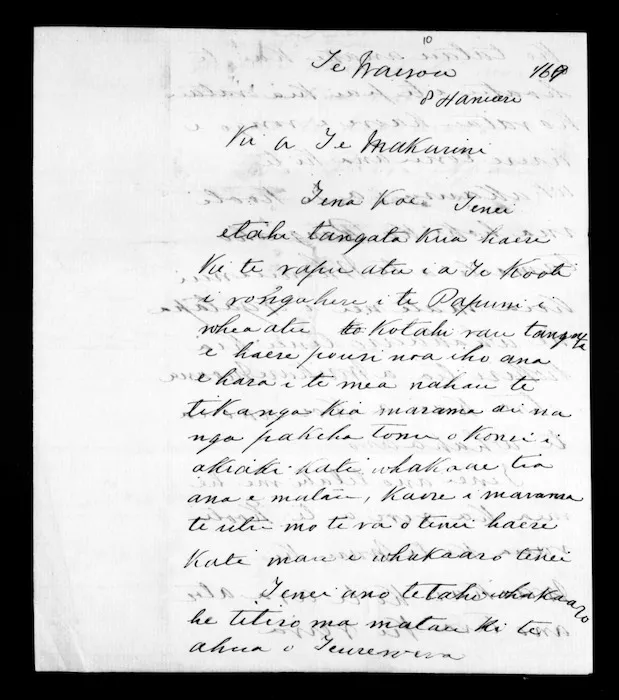 10
Te Wairoa 1869
8 Hanuere
Ki a Te Makarini
Tena Koe, Tenei
etahi tangata kua haere
ki te rapu atu i a Te Kooti
i roto ngahere i te Papuni i
whea atu Kotahi rau tangata
e haere pouri noa iho ana
ehara i te mea nahau te
tikanga kia marama ai na
nga pakeha tonu o konei i
akiaki kati whakaae tia
ana e matau, kaore i marama
te utu mo te ra o tenei haere
kati mau e whakaaro tenei
Tenei ano tetahi whakaaro
he titiro ma matau ki te
ahua o Teurewera